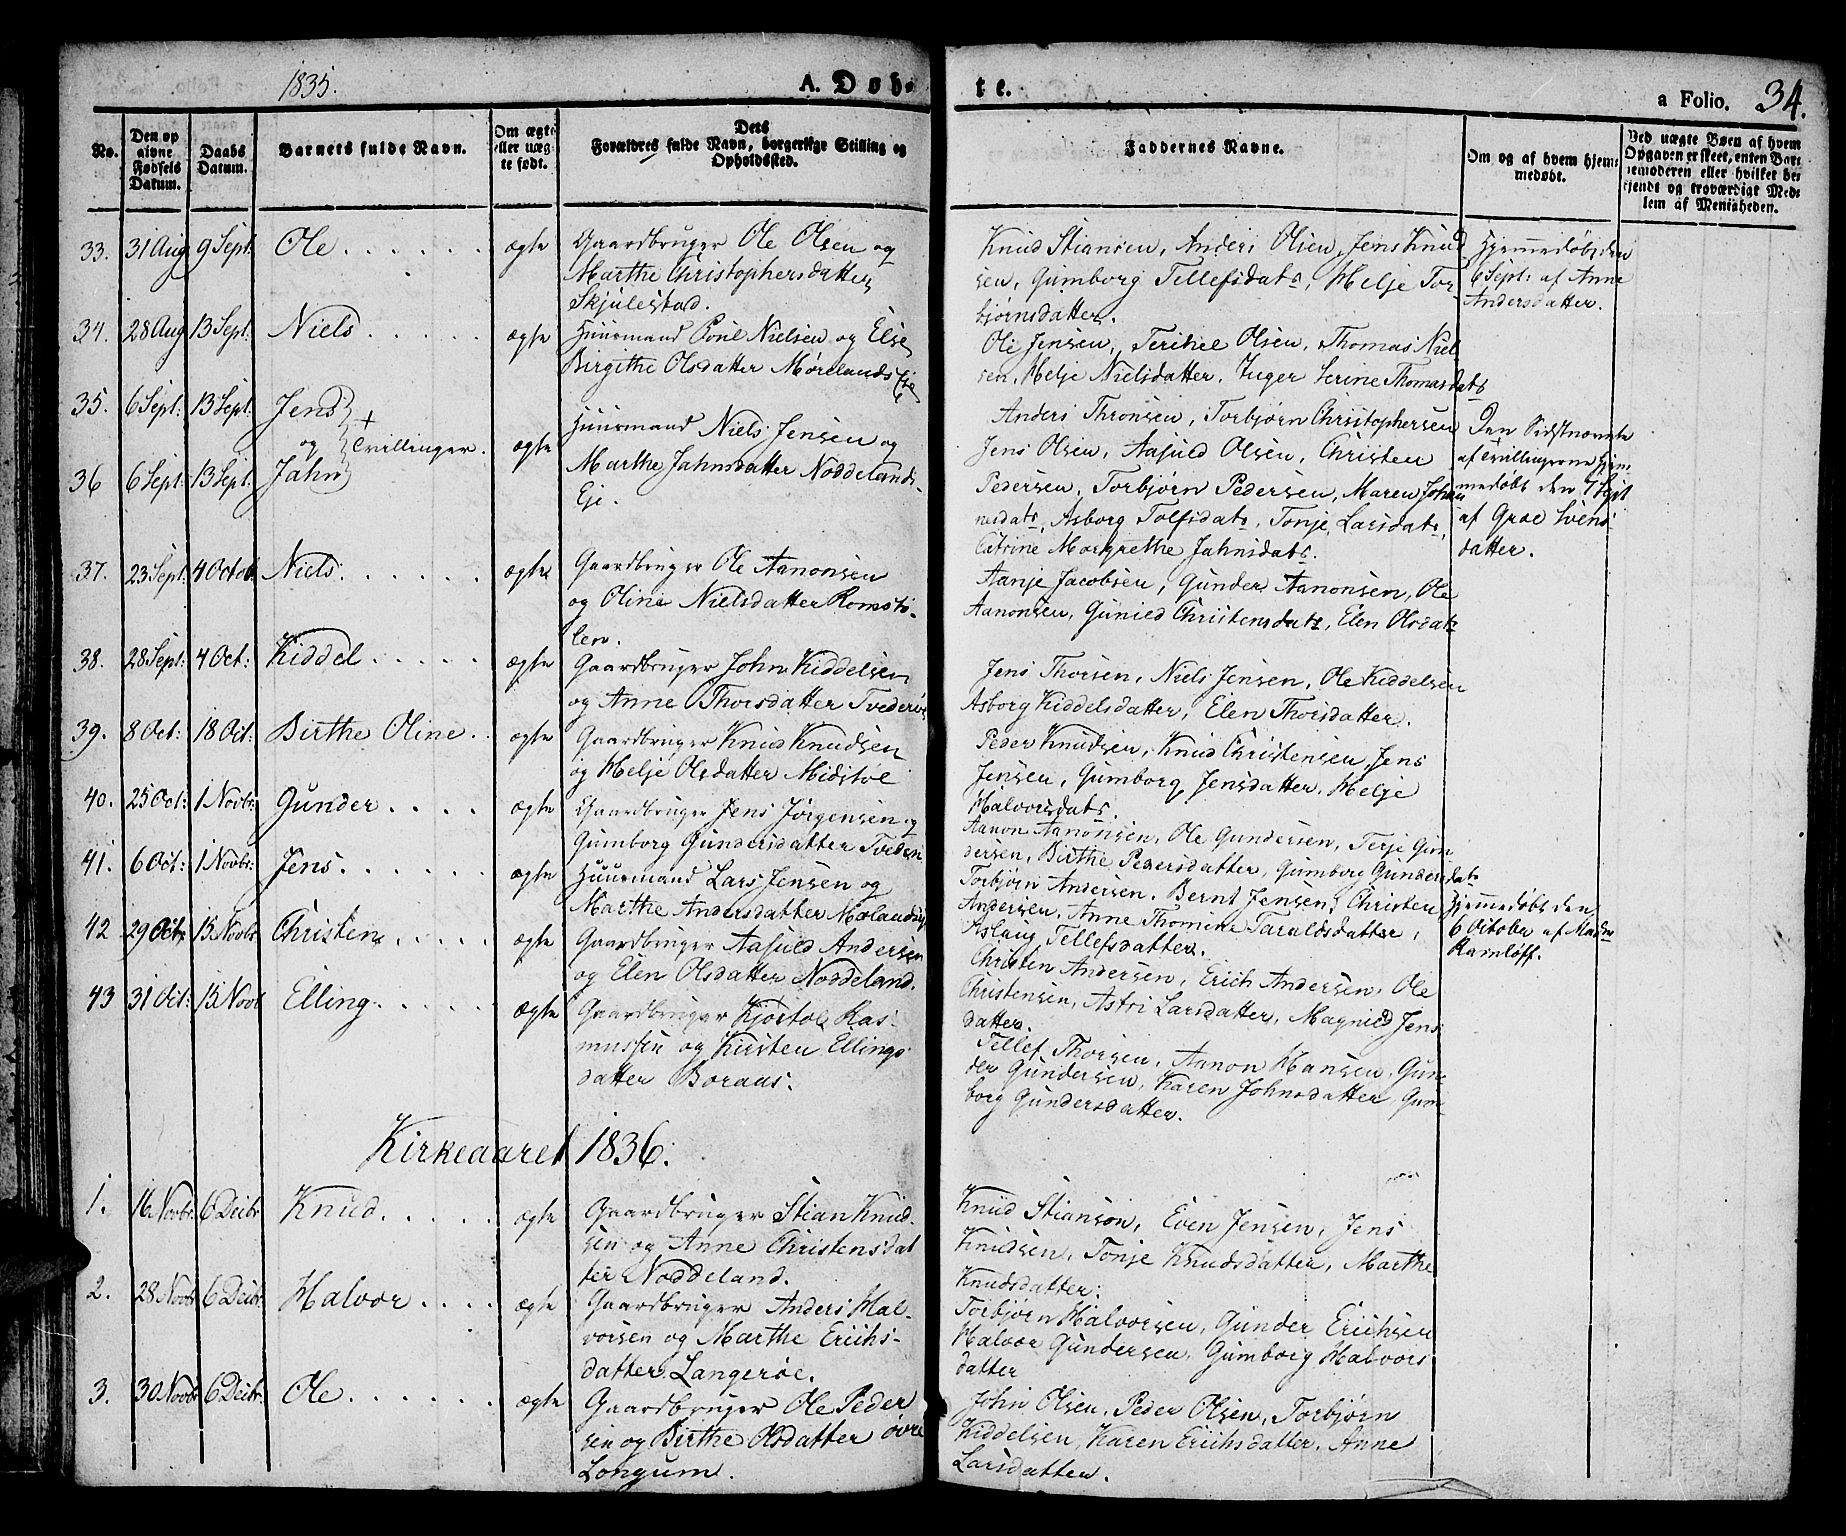 1835.
A. Døb-
te.
a Folio. 34.
No.
Den op
givne
Fødsels
Datum.
Daabs
Datum.
Barnets fulde Navn.
Om ægte
eller uæg
te født.
Dets
Forældres fulde Navn, borgerlige Stilling og
Opholdssted.
Faddernes Navne.
Om og af hvem hjem-
medøbt.
Ved uægte Børn af hvem
Opgaven er skeet, enten Bar-
nemoderen eller hvilket be-
kjendt og troværdigt Med-
lem af Menigheden.
33. 31 Aug 9 Sept: Ole ægte Gaardbruger Ole Olsen og
Marthe Christophersdatter
Skjulestad.
Knud Stiansen, Anders Olsen, Jens Knud
sen, Gumborg Tellefsdatr, Helje Tor-
bjørnsdatter.
Hjemmedøbt den
6 Sept: af Anne
Andersdatter.
34. 28 Aug 13 Sept: Niels ægte Huusmand Poul Nielsen og Else
Birgithe Olsdatter Mørelands Eje
Ole Jensen, Terikel Olsen, Thomas Niel
sen, Helje Nielsdatter, Inger Serine Thomasdatr
35. 6 Sept: 13 Sept: Jens +
og Tvillinger.
36 6 Sept: 13 Sept: Jahn
ægte Huusmand Niels Jensen og
Marthe Jahnsdatter Noddelands-
Eje.
Anders Thronsen, Torbjørn Christophersen
Jens Olsen, Aasuld Olsen, Christen
Pedersen, Torbjørn Pedersen, Maren Johan
nesdatr, Asborg Tolfsdatr, Tonje Larsdatr,
Catrine Margrethe Jahnsdatr.
Den Sidstnævnte
af Tvillingerne hjem-
medøbt den 7 Sept
af Groe Svens-
datter.
37. 23 Sept: 4 Octob: Niels ægte Gaardbruger Ole Aanonsen
og Oline Nielsdatter Romstø-
len.
Aanje Jacobsen, Gunder Aanonsen, Ole
Aanonsen, Gunild Christensdatr, Elen Olsdatr
38. 28 Sept: 4 Oct: Kiddel ægte Gaardbruger John Kiddelsen
og Anne Thorsdatter Tvederøe
Jens Thorsen, Niels Jensen, Ole Kiddelsen
Asborg Kiddelsdatter, Elen Thorsdatter.
39. 8 Oct: 18 Oct: Birthe Oline ægte Gaardbruger Knud Knudsen
og Helje Olsdatter Midstøe
Peder Knudsen, Knud Christensen, Jens
Jensen, Gumborg Jensdatter, Helje
Halvorsdatr.
40. 25 Oct: 1 Novbr: Gunder ægte Gaardbruger Jens Jørgensen og
Gumborg Gundersdatter Tveden
Aanon Aanonsen, Ole Gundersen, Terje Gun
dersen, Birthe Pedersdatter, Gumborg Gundersdatr
41. 6 Oct: 1 Novbr: Jens ægte Huusmand Lars Jensen og
Marthe Andersdatter Molandseje
Torbjørn Andersen, Bernt Jensen, Christen
Andersen, Anne Thomine Taraldsdatter,
Aslaug Tellefsdatter.
Hjemmedøbt den
6 October af Madm
Ramløff.
42 29 Oct: 15 Novbr Christen ægte Gaardbruger Aasuld Andersen
og Elen Olsdatter Noddeland.
Christen Andersen, Erich Andersen, Ole
Christensen, Astri Larsdatter, Magnild Jens
datter.
43 31 Oct: 15 Novb Elling ægte Gaardbruger Kjøstol Ras-
mussen og Kirsten Ellings
datter Boraas.
Tellef Thorsen, Aanon Hansen, Gun-
der Gundersen, Karen Johnsdatter, Gum-
borg Gundersdatter.
Kirkeaaret 1836.
1. 16 Novbr: 6 Decbr Knud ægte Gaardbruger Stian Knud-
sen og Anne Christensdat
ter Noddeland.
Knud Stianson, Even Jensen, Jens
Knudsen, Tonje Knudsdatter, Marthe
Knudsdatter.
2. 28 Novbr 6 Decbr: Halvor ægte Gaardbruger Anders Hal-
vorsen og Marthe Erichs-
datter Langerøe.
Torbjørn Halvorsen, Gunder Erichsen
Halvor Gundersen, Gumborg Halvors
datter
3. 30 Novbr 6 Decbr: Ole ægte Gaardbruger Ole Peder
sen og Birthe Olsdatter øvre
Longum.
John Olsen, Peder Olsen, Torbjørn
Kiddelsen, Karen Erichsdatter, Anne
Larsdatter.